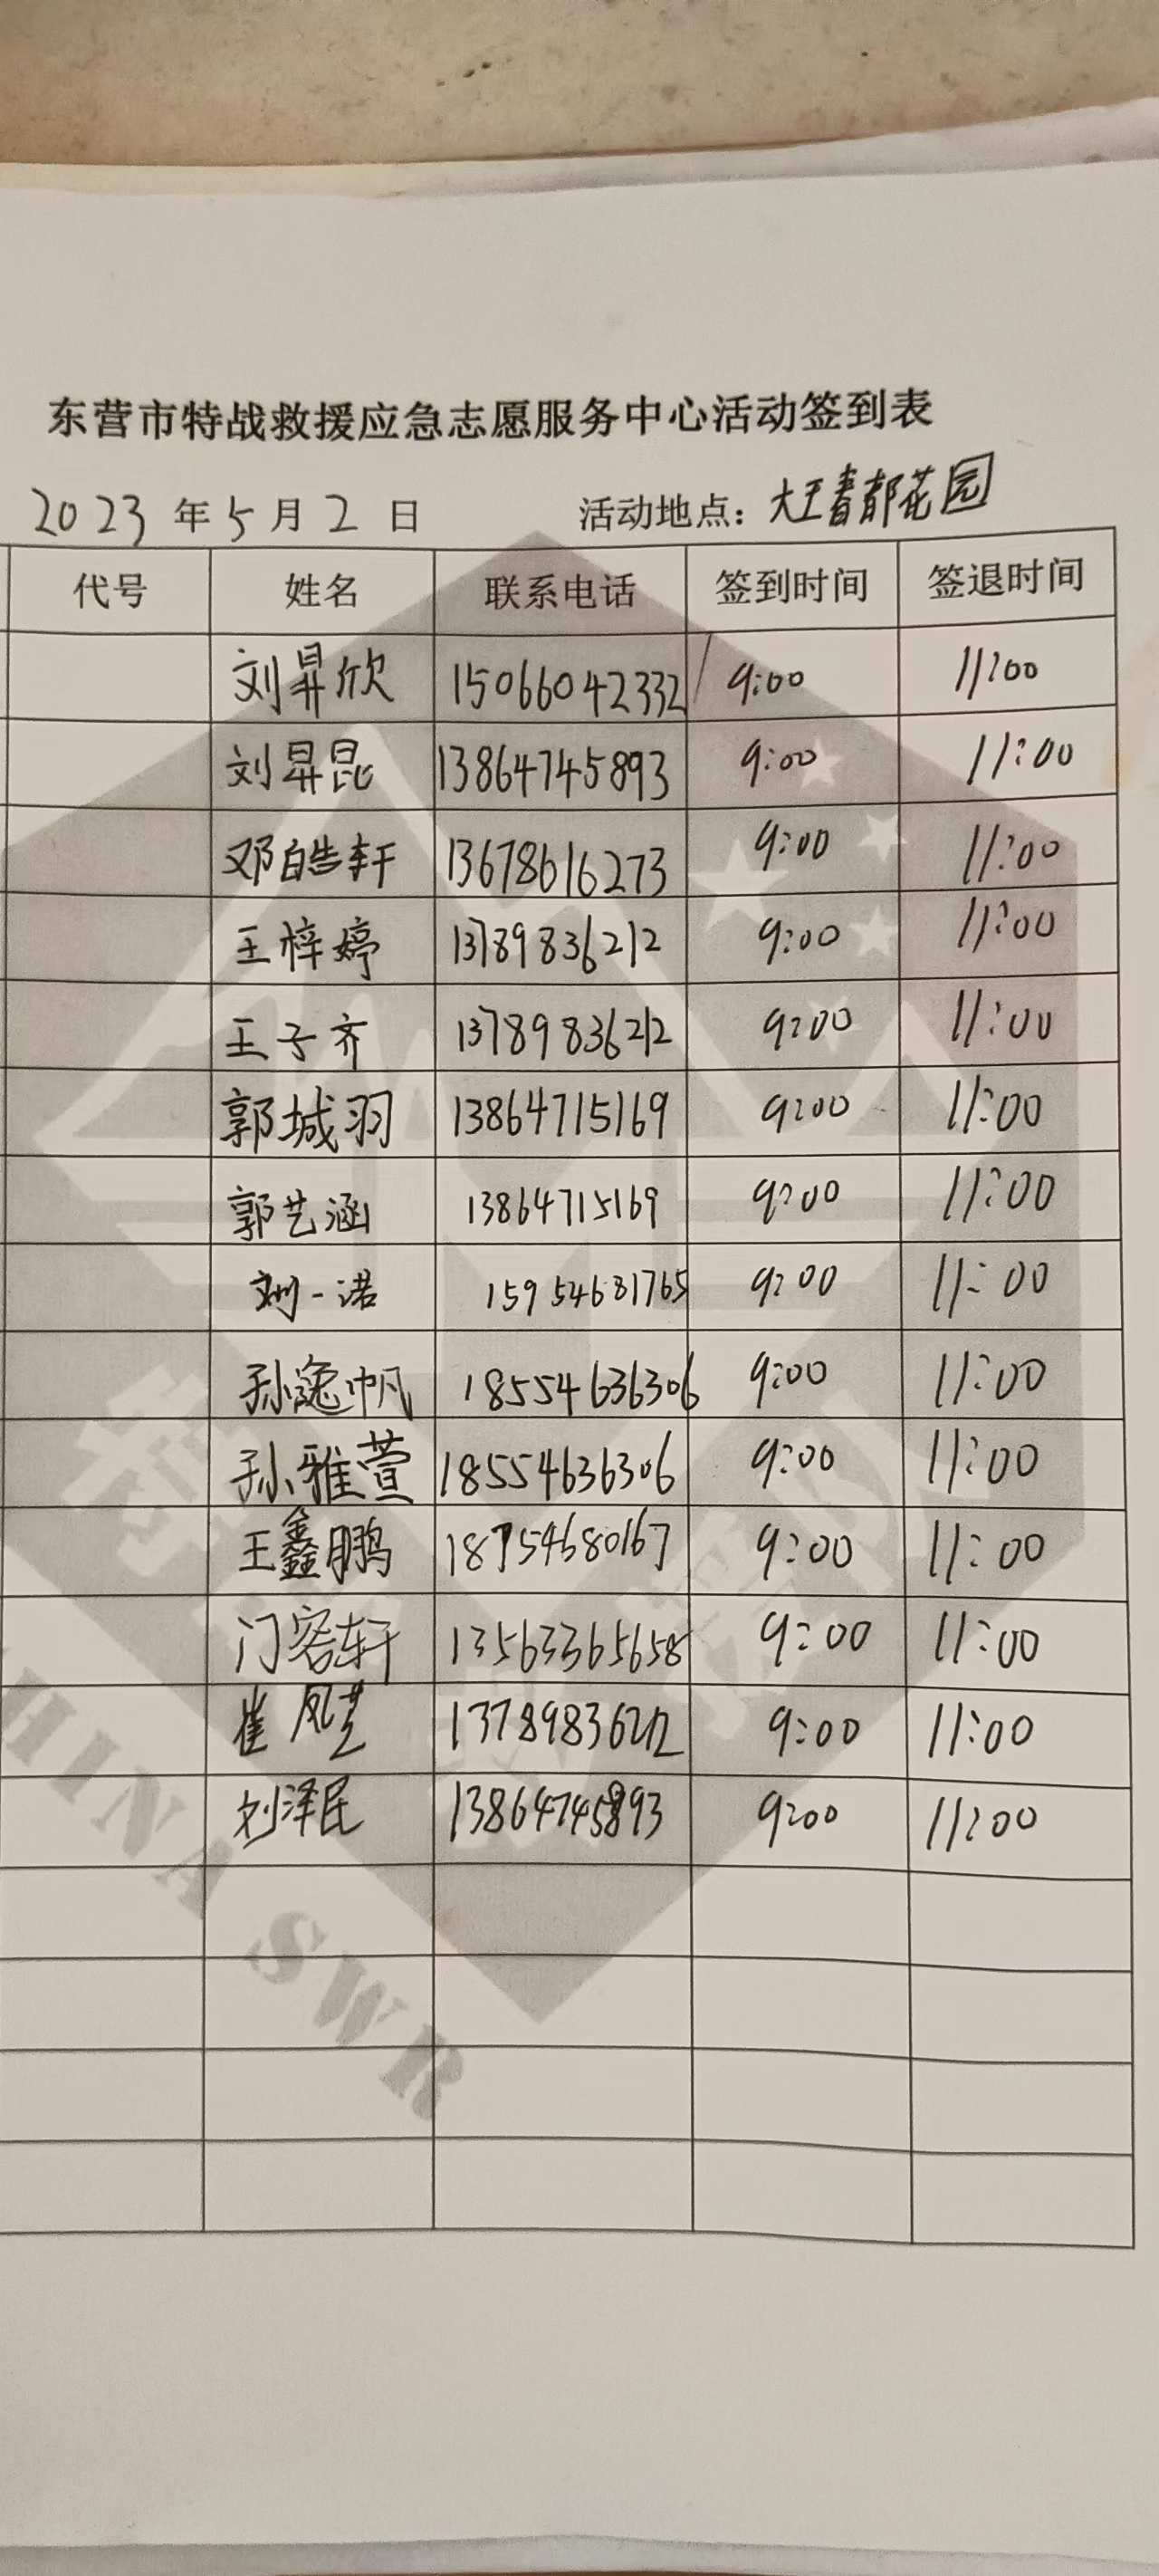 东营市特战救援应急志愿服务中心活动签到表
2023 年 5 月 2 日 活动地点: 大王春都花园
代号 姓名 联系电话 签到时间 签退时间
刘昇欣 15066042332 9:00 11:00
刘昇昆 13864745893 9:00 11:00
邓皓轩 13678616273 9:00 11:00
王梓婷 13789836212 9:00 11:00
王子齐 13789836212 9:00 11:00
郭城羽 13864715169 9:00 11:00
郭艺涵 13864715169 9:00 11:00
刘一诺 15954681765 9:00 11:00
孙逸帆 18554636306 9:00 11:00
孙雅萱 18554636306 9:00 11:00
王鑫鹏 18754680167 9:00 11:00
门容轩 13563365658 9:00 11:00
崔凤芝 13789836212 9:00 11:00
刘泽民 13864745893 9:00 11:00
HINA SWR